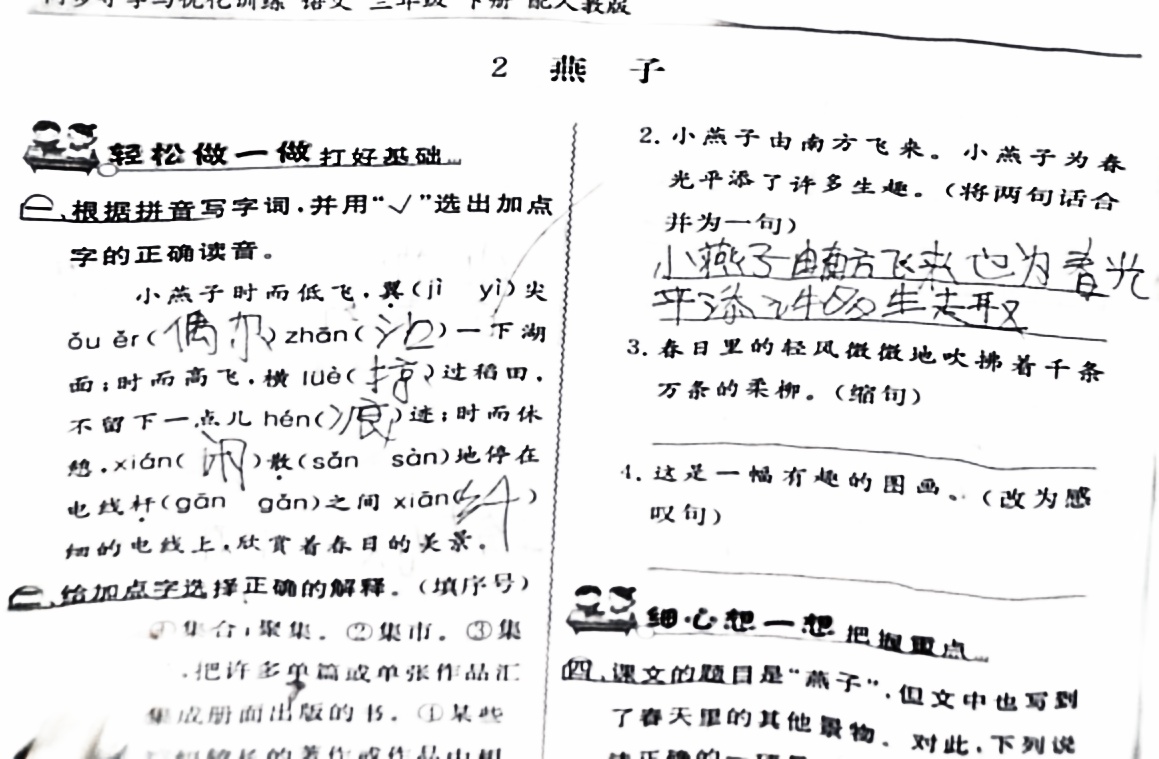 同步导学与优化训练 语文 三年级 下册 配人教版
2 燕子
轻松做一做 打好基础
一、根据拼音写字词,并用“√”选出加点
字的正确读音。
小燕子时而低飞,翼(jì yì)尖
ǒu ěr(偶尔)zhān(沾)一下湖
面;时而高飞,横lüè(掠)过稻田,
不留下一点儿hén(痕)迹;时而休
憩,xián(闲)散(sǎn sàn)地停在
电线杆(gān gǎn)之间xiān(纤)
细的电线上,欣赏着春日的美景。
二、给加点字选择正确的解释。(填序号)
①集合;聚集。②集市。③集
,把许多单篇或单张作品汇
集成册而出版的书。④某些
的著作或作品中相
2. 小燕子由南方飞来。小燕子为春
光平添了许多生趣。(将两句话合
并为一句)
小燕子由南方飞来也为春光
平添了许多生趣
3. 春日里的轻风微微地吹拂着千条
万条的柔柳。(缩句)
4. 这是一幅有趣的图画。(改为感
叹句)
细心想一想 把握重点
四、课文的题目是“燕子”,但文中也写到
了春天里的其他景物。对此,下列说
法正确的一项是